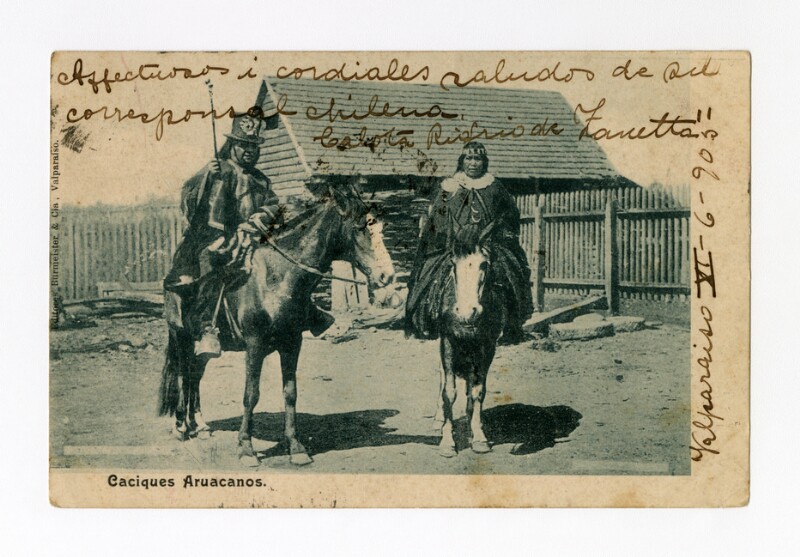 Affectuosos i cordiales saludos de su
corresponsal chilena.
de Zanetta
Editores Burmeister & Cia, Valparaiso.
Valparaiso VI-6-903
Caciques Aruacanos.